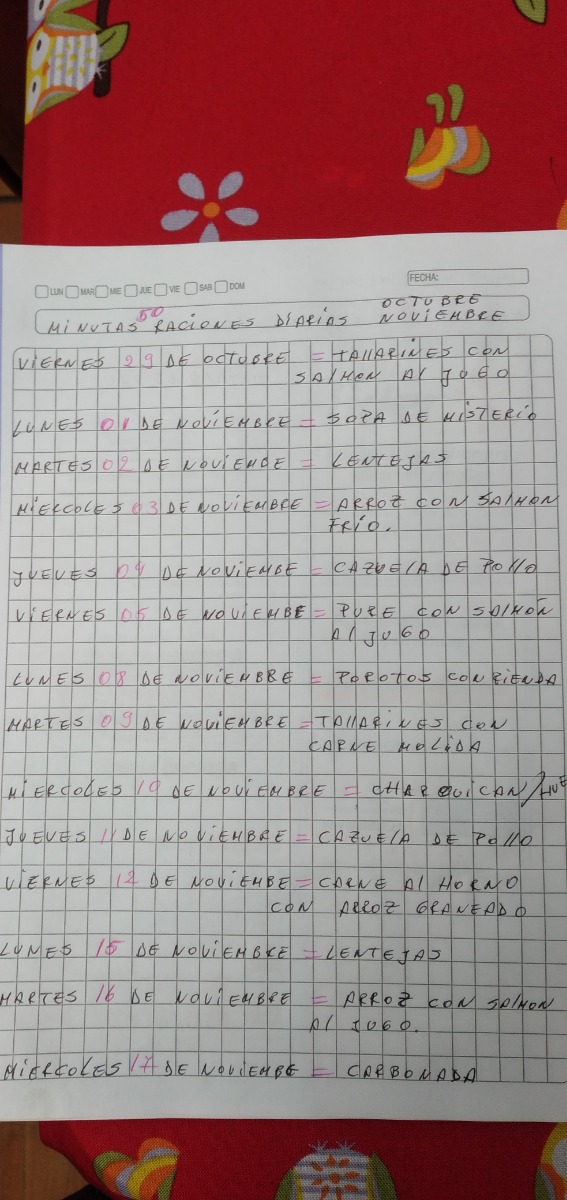 FECHA:
LUN MAR MIE JUE VIE SAB DOM
OCTUBRE
50
MINUTAS RACIONES DIARIAS NOVIEMBRE
VIERNES 29 DE OCTUBRE = TALLARINES CON
SALMON AL JUGO
LUNES 01 DE NOVIEMBRE = SOPA DE MISTERIO
MARTES 02 DE NOVIEMBE = LENTEJAS
MIERCOLES 03 DE NOVIEMBRE = ARROZ CON SALMON
FRÍO.
JUEVES 04 DE NOVIEMBE = CAZUELA DE POLLO
VIERNES 05 DE NOVIEMBE = PURE CON SALMON
AL JUGO
LUNES 08 DE NOVIEMBRE = POROTOS CON RIENDA
MARTES 09 DE NOVIEMBRE = TALLARINES CON
CARNE MOLIDA
MIERCOLES 10 DE NOVIEMBRE = CHARQUICAN/HUE
JUEVES 11 DE NOVIEMBRE = CAZUELA DE POLLO
VIERNES 12 DE NOVIEMBE = CARNE AL HORNO
CON ARROZ GRANEADO
LUNES 15 DE NOVIEMBRE = LENTEJAS
MARTES 16 DE NOVIEMBRE = ARROZ CON SALMON
AL JUGO.
MIERCOLES 17 DE NOVIEMBE = CARBONADA